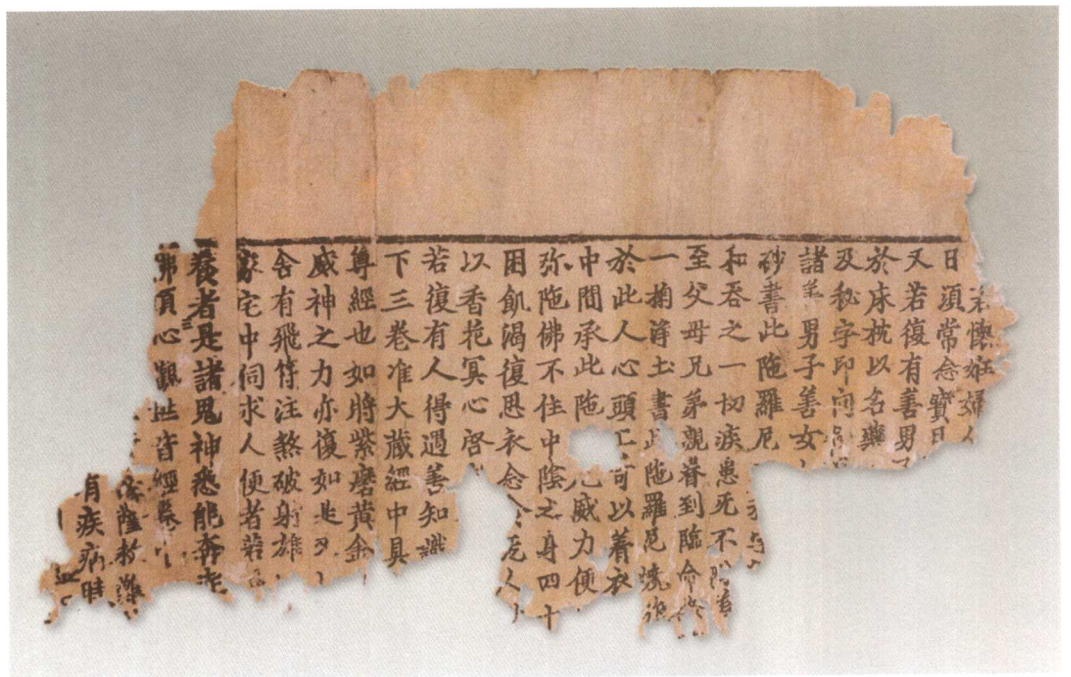 若懷妊婦
日須常念寶月
又若復有善男
於床枕以名藥
及秘字印向
諸善男子善女
砂書此陁羅尼
和吞之一切疾患死不
至父母兄弟親眷到臨命
一掬淨土書此陁羅尼燒
於此人心頭上可以着衣
中間承此陁尼威力便
弥陁佛不住中陰之身四十
困飢渴復思衣念
以香花冥心啓
若復有人得遇善知識
下三卷准大藏經中具
尊經也如將紫磨黃金
威神之力亦復如是
舍有飛符注煞破射雄
家宅中伺求人便者若
養者是諸鬼神悉能奔走
佛頂心觀世音經卷
救難
有疾病時